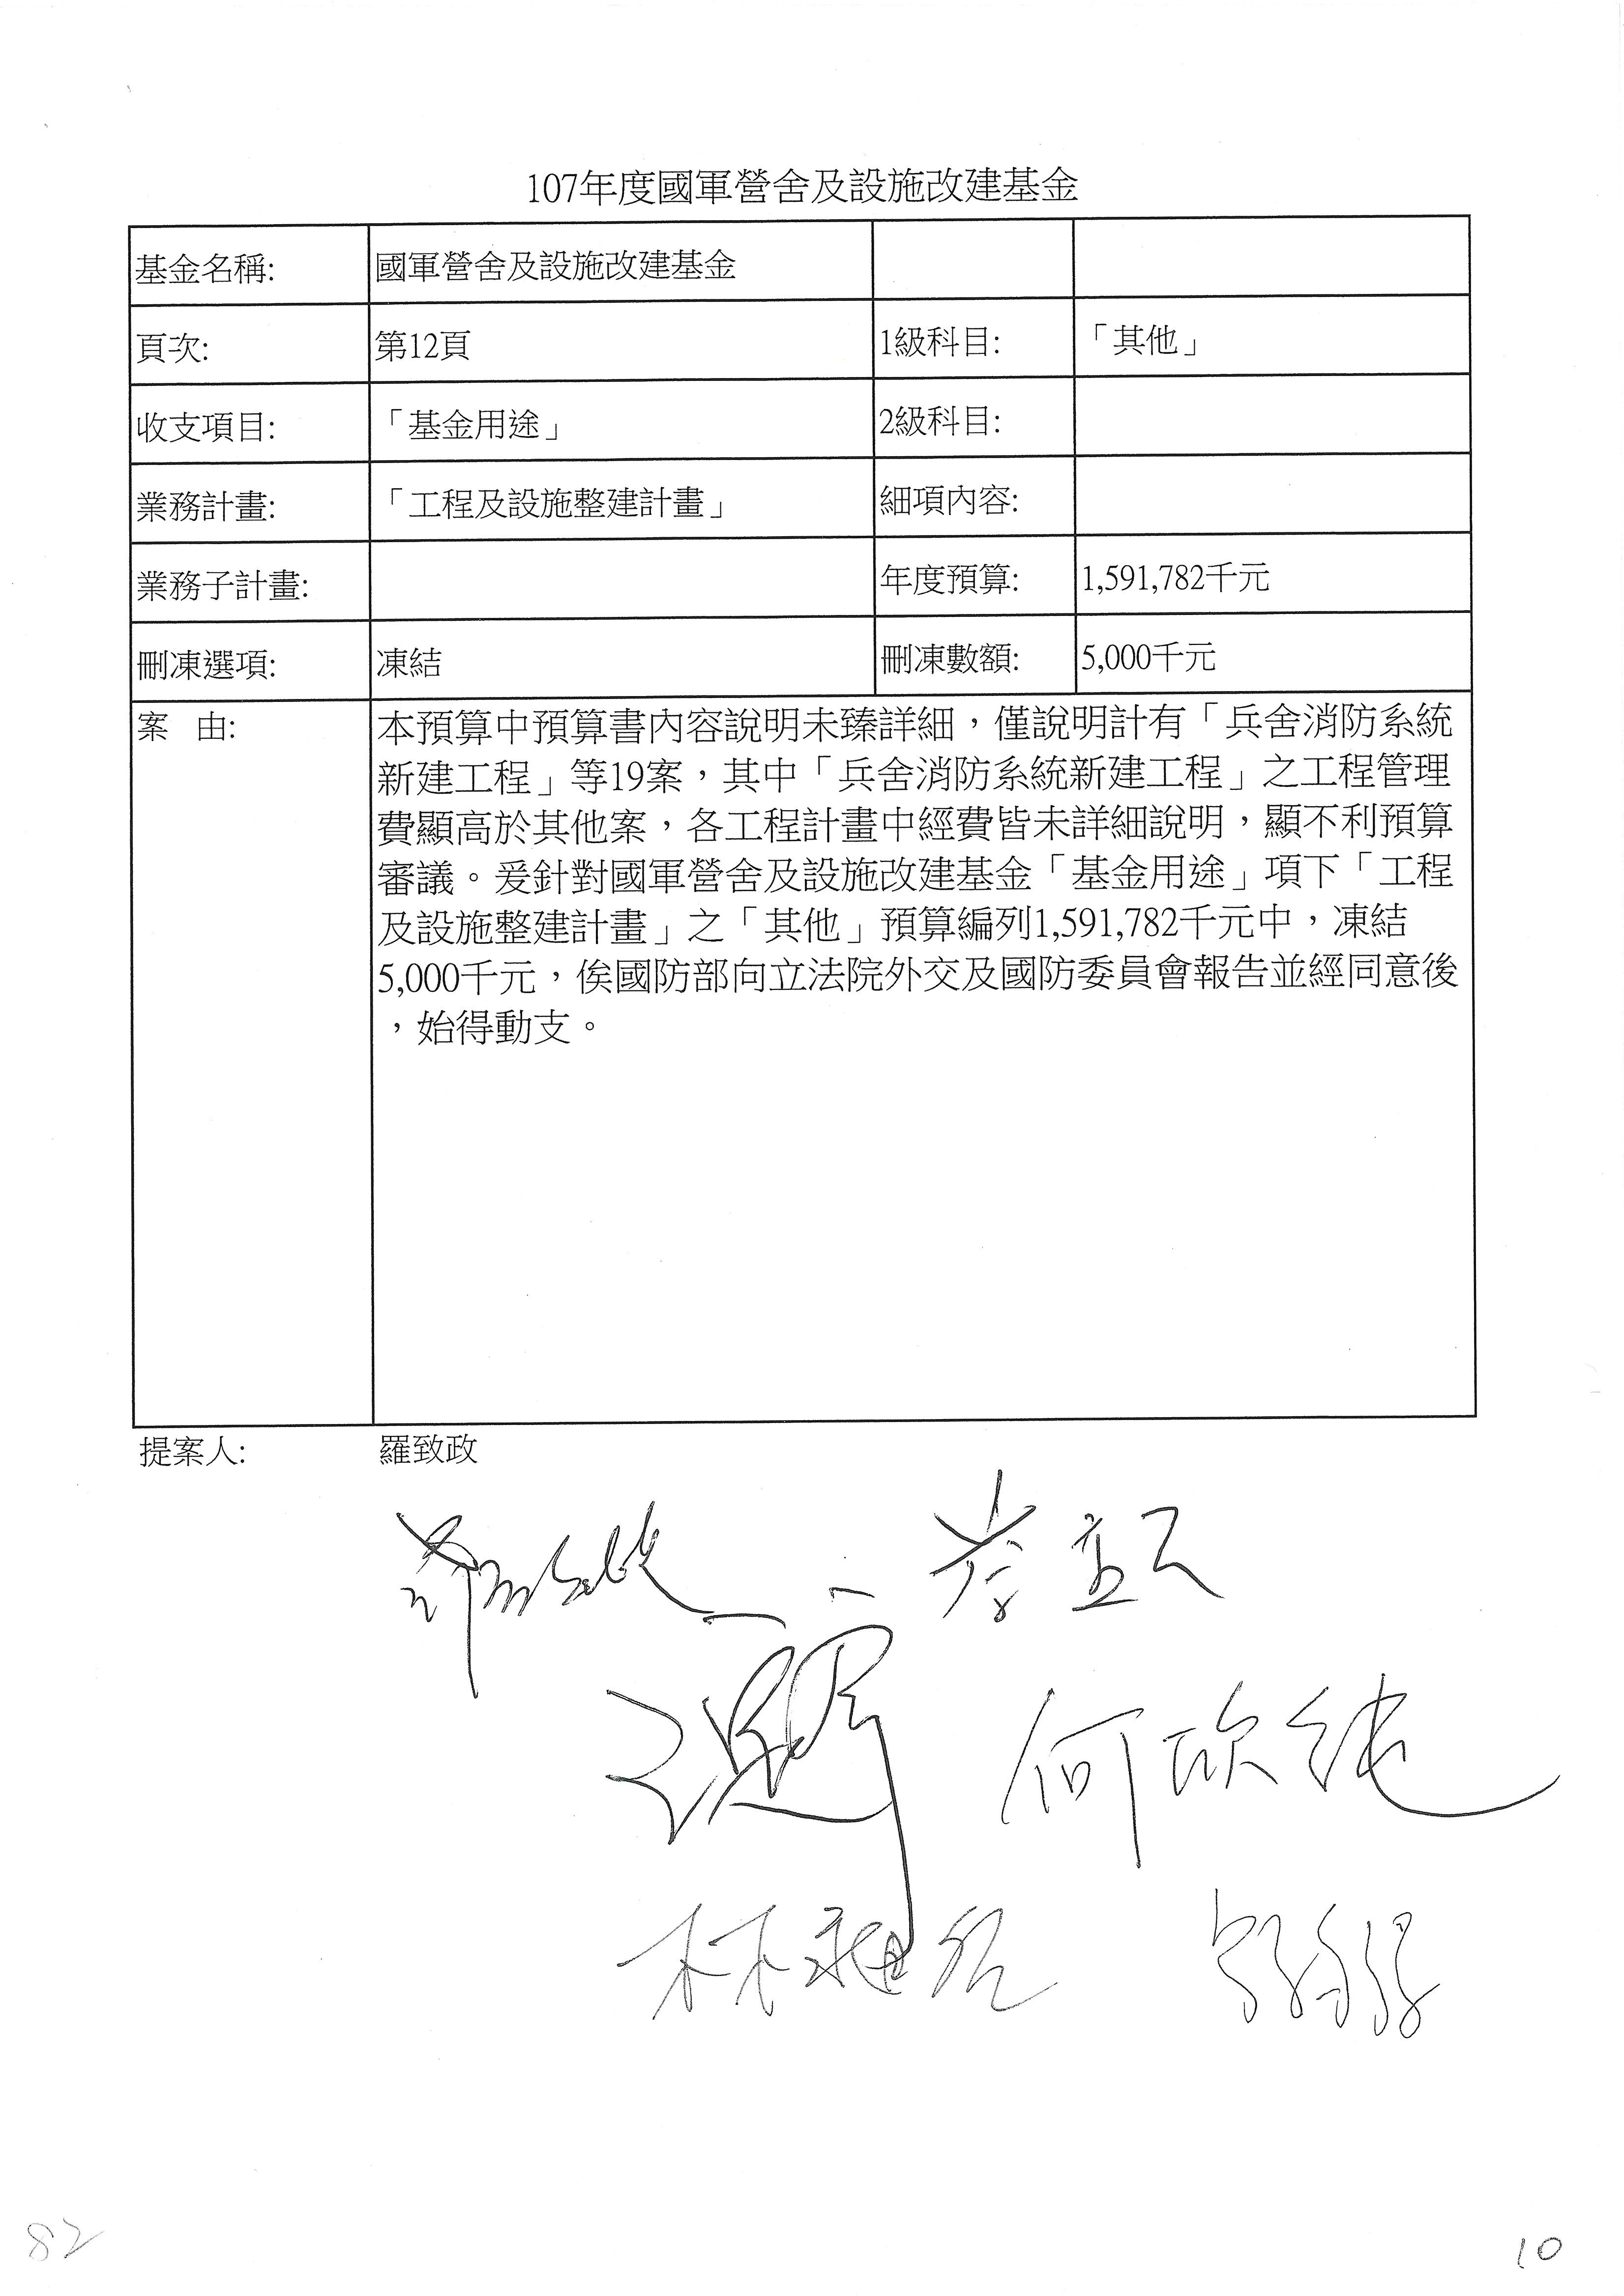 107年度國軍營舍及設施改建基金
基金名稱: 國軍營舍及設施改建基金
頁次: 第12頁 1級科目: 「其他」
收支項目: 「基金用途」 2級科目:
業務計畫: 「工程及設施整建計畫」 細項內容:
業務子計畫: 年度預算: 1,591,782千元
刪凍選項: 凍結 刪凍數額: 5,000千元
案 由: 本預算中預算書內容說明未臻詳細，僅說明計有「兵舍消防系統
新建工程」等19案，其中「兵舍消防系統新建工程」之工程管理
費顯高於其他案，各工程計畫中經費皆未詳細說明，顯不利預算
審議。爰針對國軍營舍及設施改建基金「基金用途」項下「工程
及設施整建計畫」之「其他」預算編列1,591,782千元中，凍結
5,000千元，俟國防部向立法院外交及國防委員會報告並經同意後
，始得動支。
提案人: 羅致政
羅致政
何欣純
林昶佐
82
10